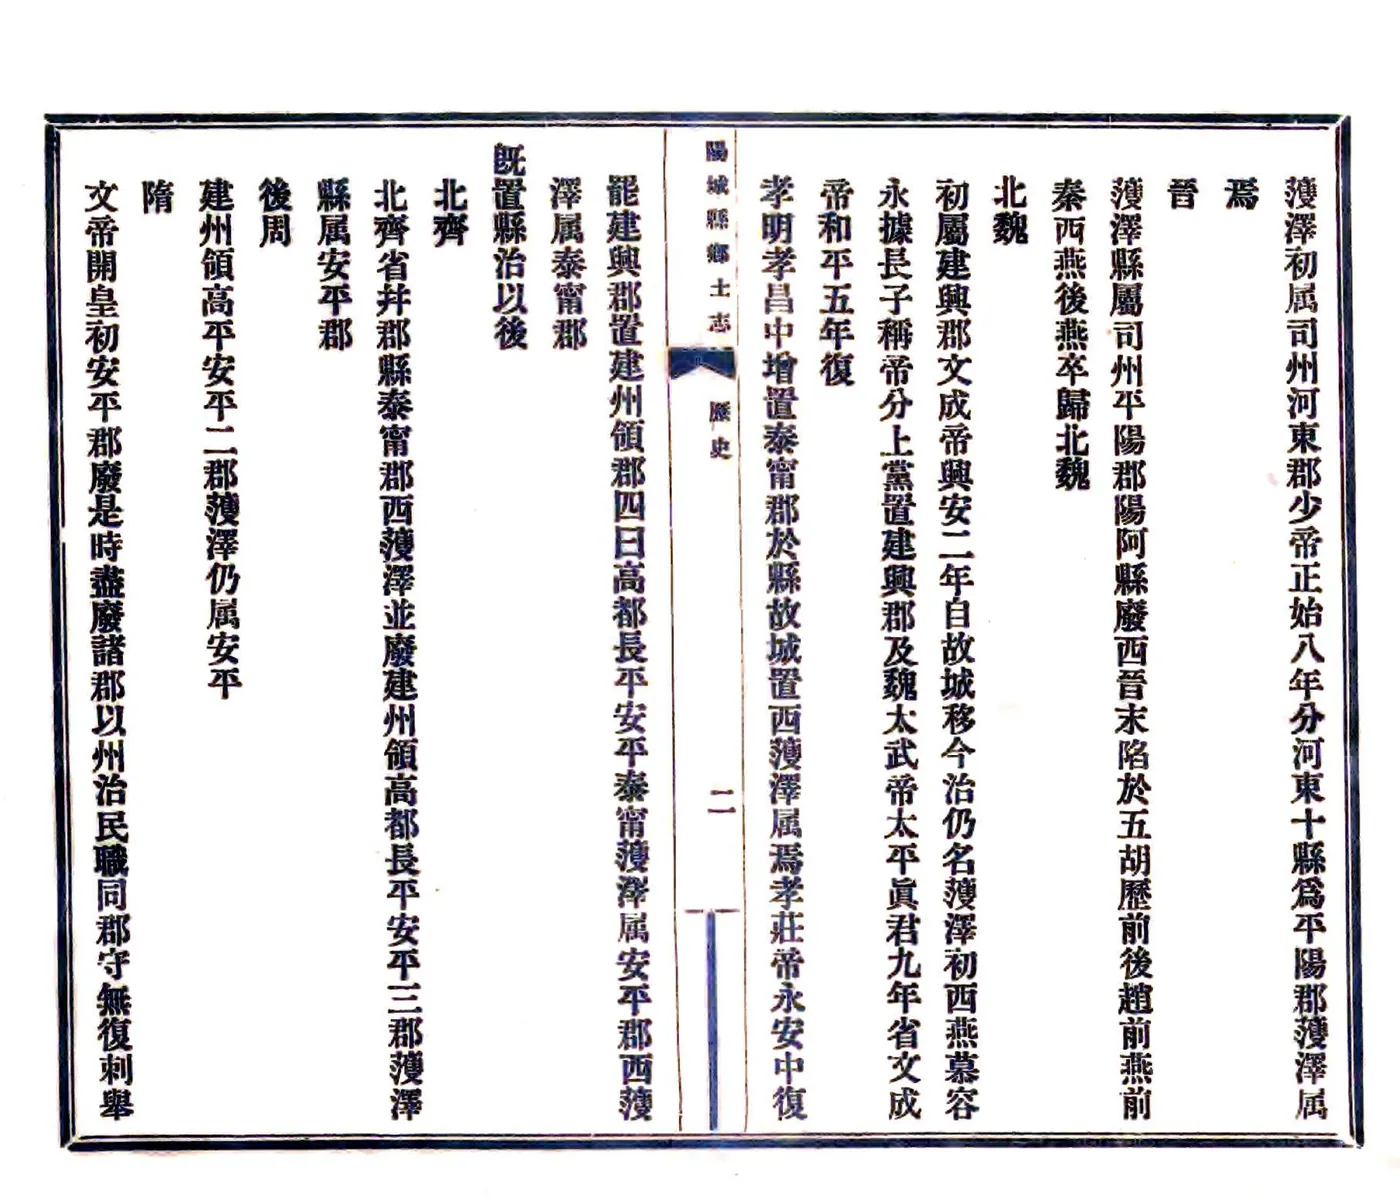 濩澤初属司州河東郡少帝正始八年分河東十縣爲平陽郡濩澤属
焉
晉
濩澤縣屬司州平陽郡陽阿縣廢西晉末陷於五胡歷前後趙前燕前
秦西燕後燕卒歸北魏
北魏
初屬建興郡文成帝興安二年自故城移今治仍名濩澤初西燕慕容
永據長子稱帝分上黨置建興郡及魏太武帝太平眞君九年省文成
帝和平五年復
孝明孝昌中增置泰甯郡於縣故城置西濩澤属焉孝莊帝永安中復
陽城縣鄉土志
歷史
二
罷建興郡置建州領郡四曰高都長平安平泰甯濩澤属安平郡西濩
澤属泰甯郡
既置縣治以後
北齊
北齊省幷郡縣泰甯郡西濩澤並廢建州領高都長平安平三郡濩澤
縣属安平郡
後周
建州領高平安平二郡濩澤仍属安平
隋
文帝開皇初安平郡廢是時盡廢諸郡以州治民職同郡守無復刺舉